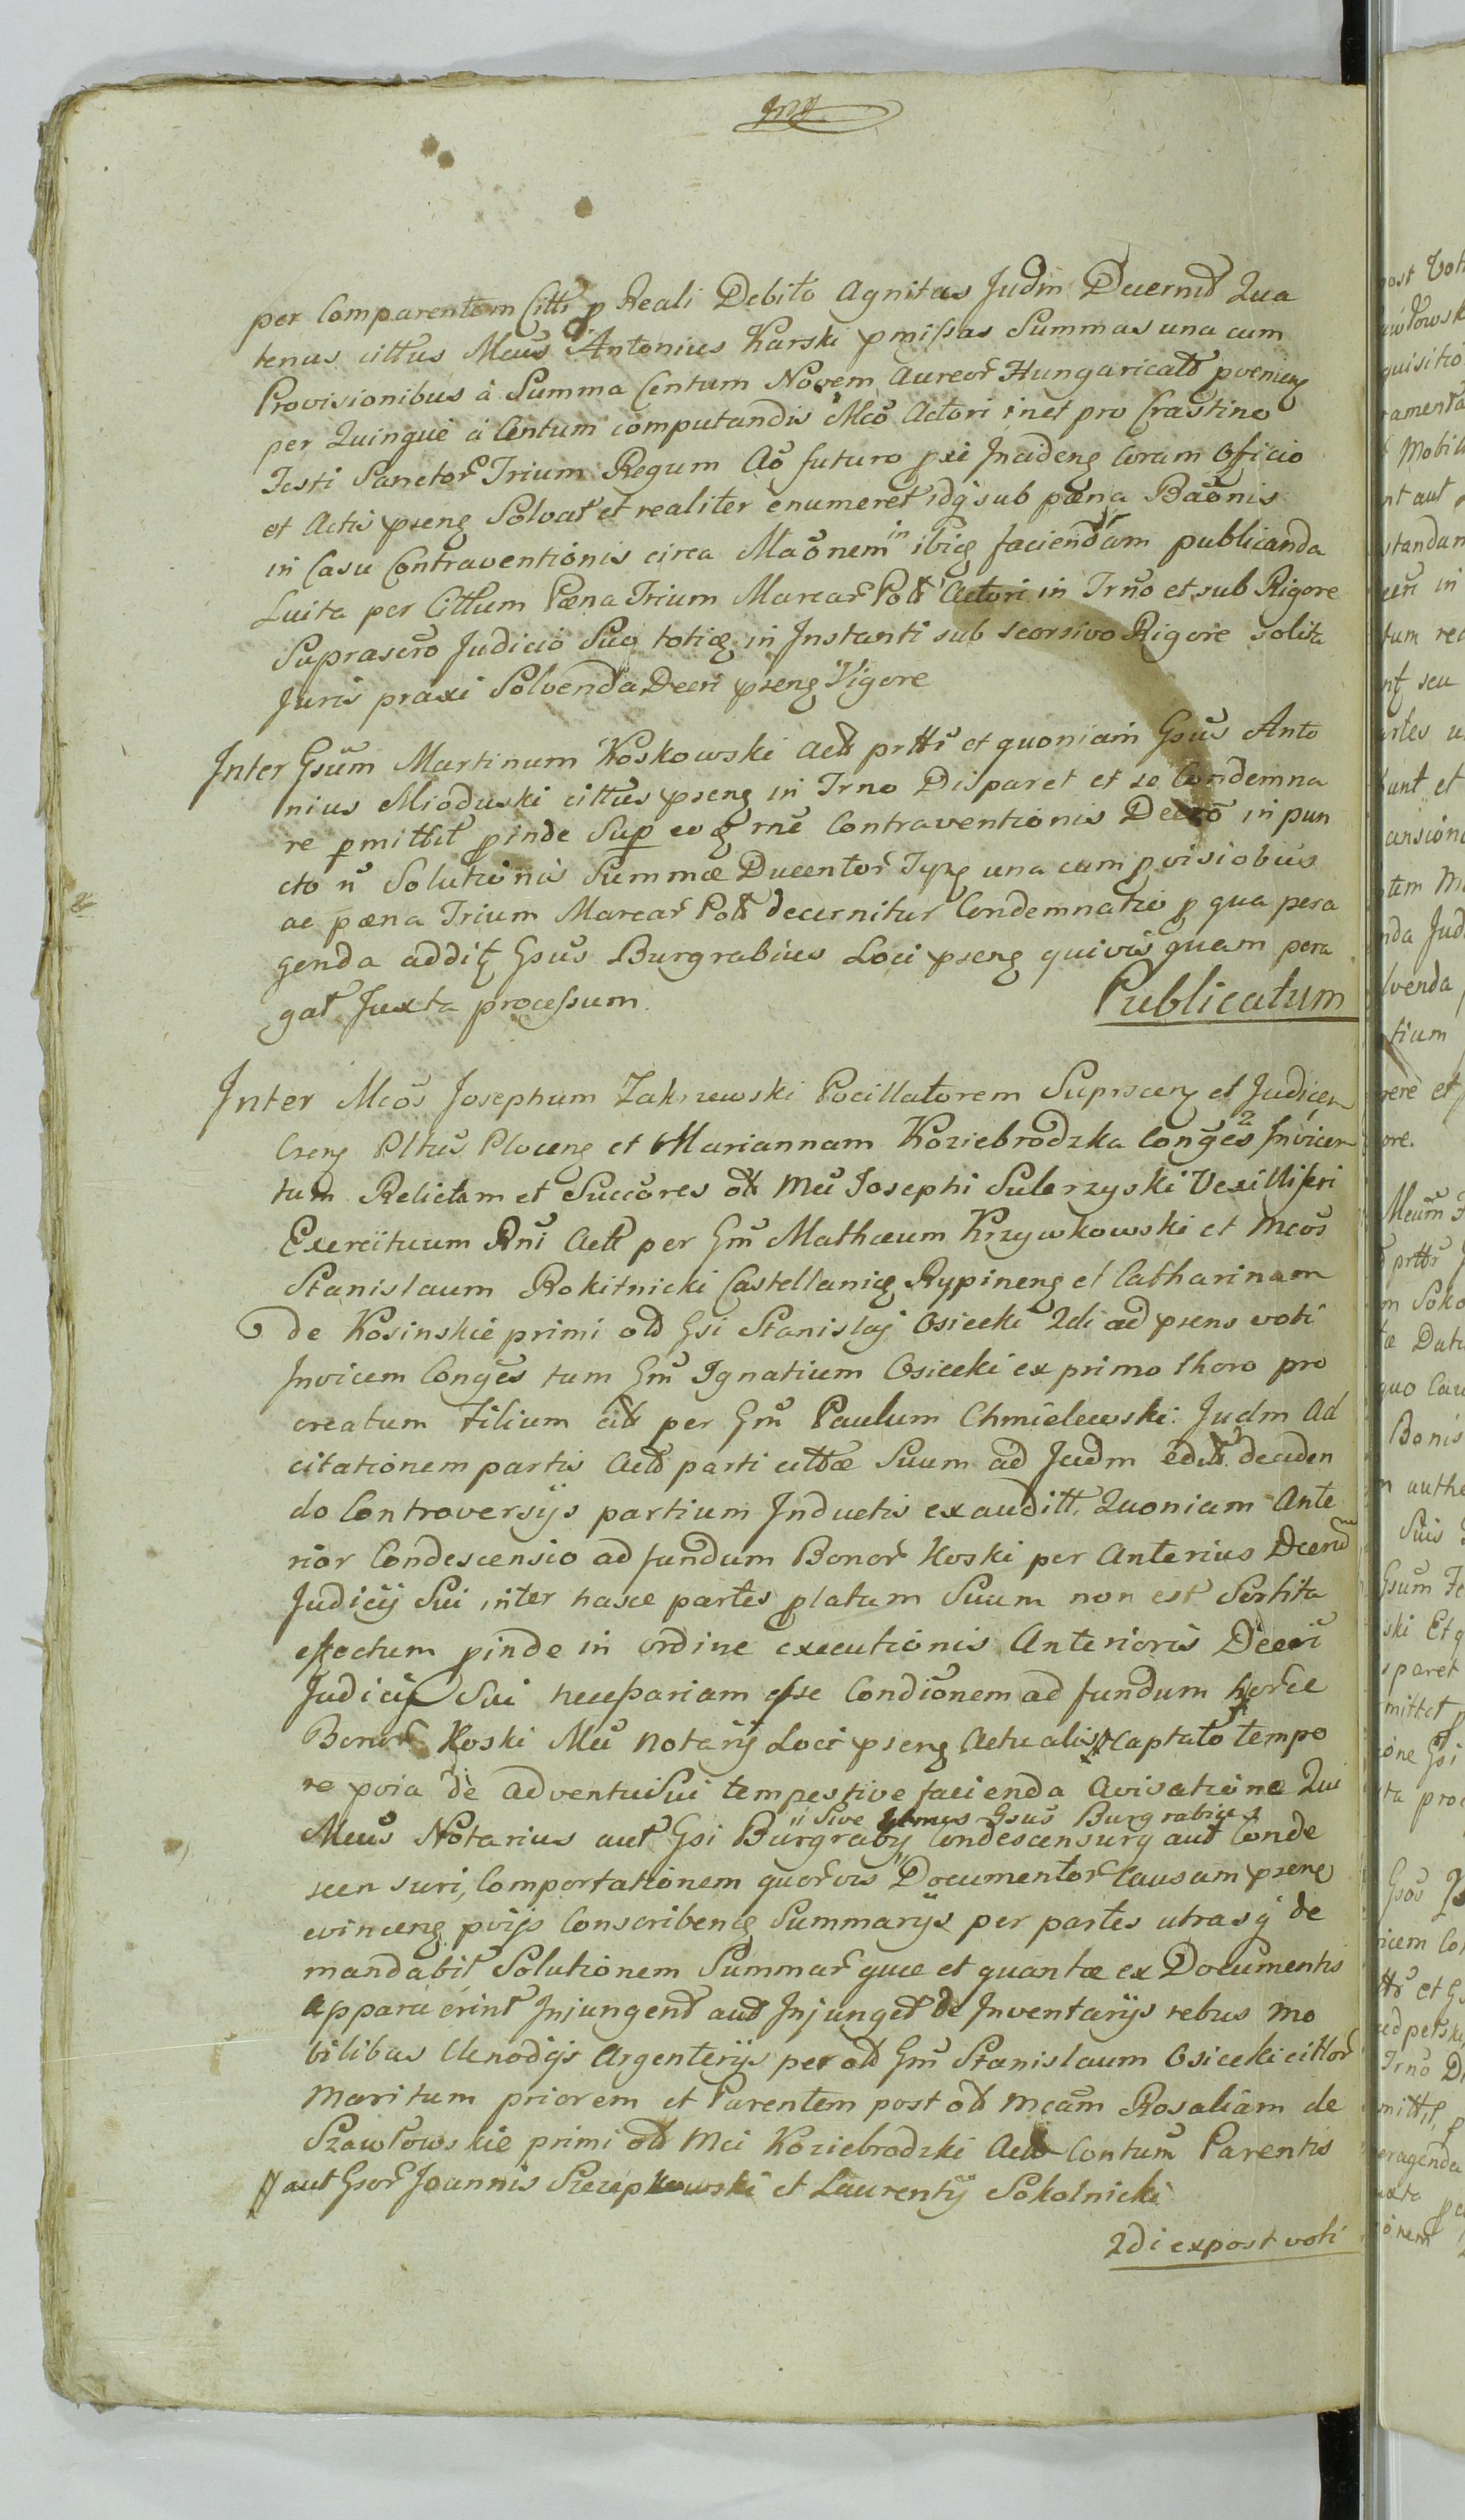 per Comparentem Citti p Reali Debito Agnitas Judm Decernit Qua
tenus cittus Mcus d. Antonius Karski pmissas Summas una cum
Provisionibus á Summa Centum Novem Aureor Hungaricalt pvenieng
per Quinque á Centum computandis Mco Actori inet pro Crastino
Festi Sanctor Trium Regum Ao futuro pxi Incideng Coram Officio
et Actis pseng Solvat et realiter enumeret idq sub pæna Baonis
in Casu Contraventionis circa Maonem in ibiq faciendam publicanda
Luita per Cittum Pæna Trium Marcar Polt Actori in Trno et sub Rigore
Suprascro Judicio Suo totiq in Instanti sub seorsivo Rigore solita
Juris praxi Solvenda Decri pseng Vigore
Inter Gsum Martinum Koskowski Actt prtti et quoniam Gsus Anto
nius Mioduski cittus pseng in Trno Disparet et se Condemna
re pmittit pinde Sup eo q rne Contraventionis Decro in pun
cto n Solutionis Summæ Ducentor Typg una cum pvisiobus
ac pæna Trium Marcar Polt decernitur Condemnatio p qua pera
genda addit Gsus Burgrabius Loci pseng quivis quam pera
gat Juxta processum.
Publicatum
Inter Mcos Josephum Zakrzewski Pocillatorem Supiscen et Judicem
Cseng Pltus Ploceng et Mariannam Koziebrodzka Conges 2 Invicem
tum Relictam et Succores olt Mci Josephi Sulerzyski Vexilliferi
Exercituum Rni Actt per Gm Mathæum Krzywkowski et Mcos
Stanislaum Rokitnicki Castellaniq Rypineng et Catharinam
de Kosinskie primi olt Gsi Stanislai Osiecki 2di ad psens voti
Invicem Conges tum Gm Ignatium Osiecki ex primo thoro pro
creatum Filium citt per Gm Paulum Chmielewski. Judm Ad
citationem partis Actt parti cittæ Suum ad Judm edit deciden
do Controversijs partium Inductis exauditt, Quoniam Ante
rior Condescensio ad fundum Bonor Koski per Anterius Decrm
Judicij Sui inter hasce partes platum Suum non est Sortita
effectum pinde in ordine executionis Anterioris Decri
Judicij Sui necessariam esse Condionem ad fundum horce
Bonor Koski Mci Notarij Loci pseng Actualis Captato tempo
re pvia de adventu Sui tempestive facienda Avisatione Qui
ii Sive Gsus Burgrabius
Mcus Notarius aut Gsi Burgrabij Condescensurg aut Conde
scensuri, Comportationem quorvis Documentor Causam pseng
evinceng pvijs Conscribeng Summarijs per partes utrasq de
mandabit Solutionem Summar quæ et quantæ ex Documentis
apparuerint Injungent aut Injunget de Inventarijs rebus mo
bilibus Clenodijs Argenterijs per olt Gm Stanislaum Osiecki cittor
Maritum priorem et Parentem post olt Mcam Rosaliam de
Szawłowskie primi olt Mci Koziebrodzki Actt Contum Parentis
// aut Gsor Joannis Szczepkowski et Laurentij Sokolnicki
2di expost voti